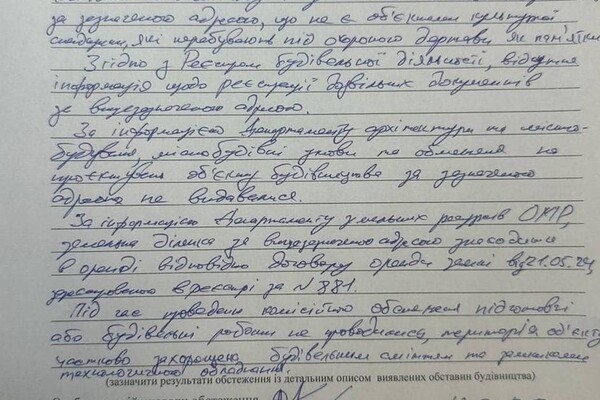 за зазначеною адресою, що не є об'єктами культурної
спадщини, які перебувають під охороною держави як пам'ятки
Згідно з Реєстром будівельної діяльності, відсутня
інформація щодо реєстрації дозвільних документів
за вищезазначеною адресою.
За інформацією Департаменту архітектури та місто-
будування, містобудівні умови та обмеження на
проєктування об'єкту будівництва за зазначеною
адресою не видавалися.
За інформацією Департаменту земельних ресурсів ОМР,
земельна ділянка за вищезазначеною адресою знаходиться
в оренді відповідно договору оренди землі від 21.05.24,
зареєстрованою в реєстрі за №881.
Під час проведення комісійного обстеження підготовчі
або будівельні роботи не проводилися, територія об'єкту
частково захаращена будівельним сміттям та залишками
технологічного обладнання.
(зазначити результати обстеження із детальним описом виявлених обставин будівництва)